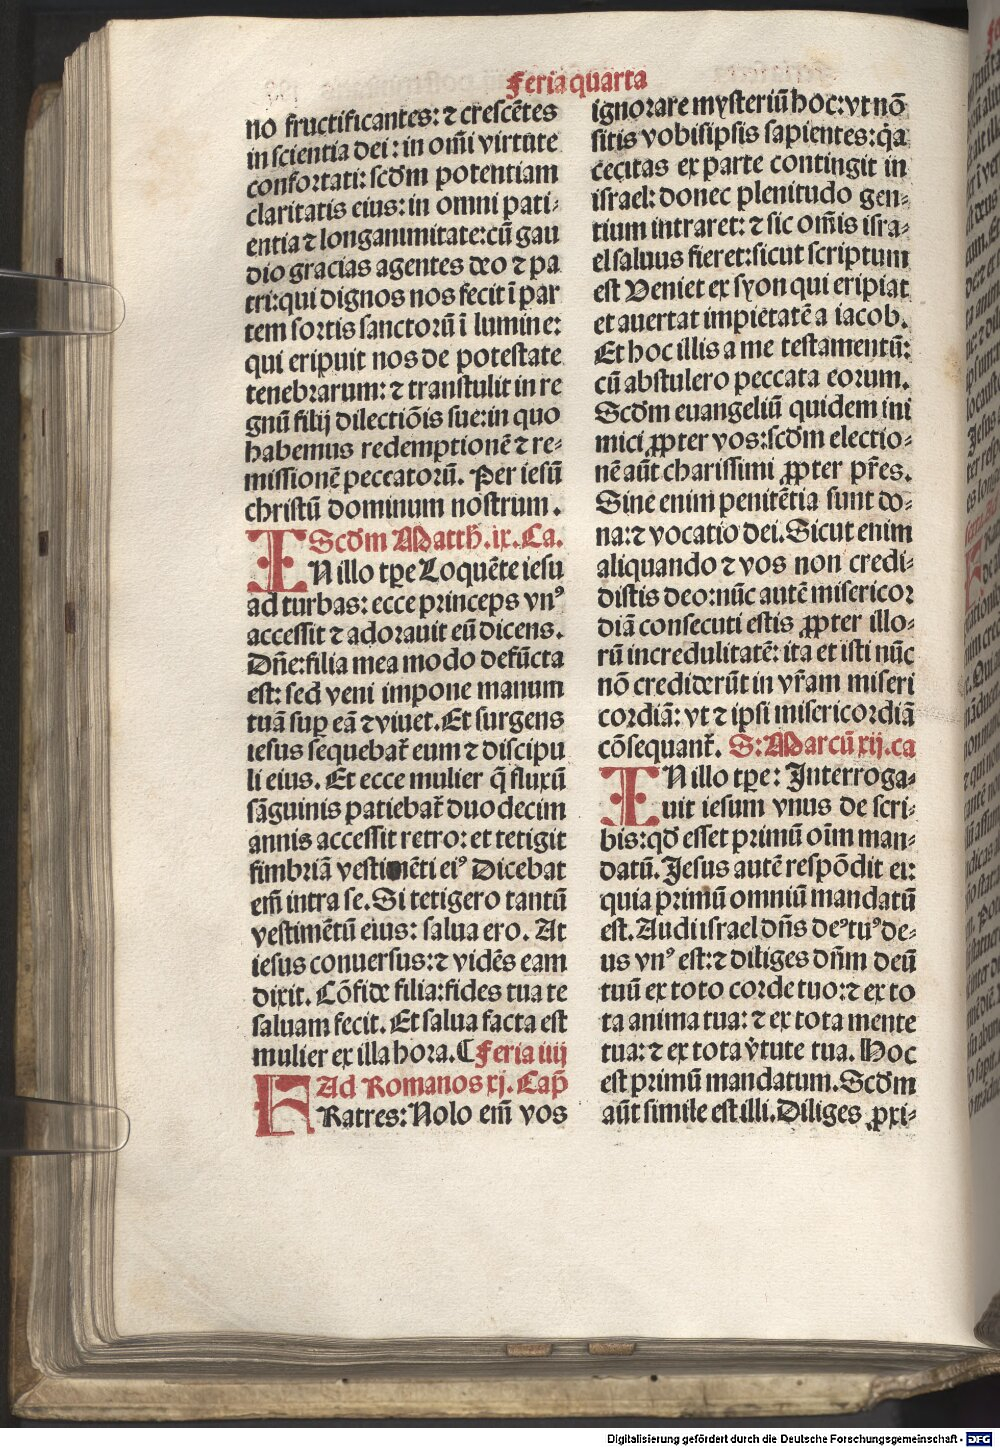 Feria quarta
no fructificantes: ⁊ crescētes
in scientia dei: in om̄i virtute
confortati: scd̄m potentiam
claritatis eius: in omni pati⸗
entia ⁊ longanimitate: cū gau
dio gracias agentes deo ⁊ pa
tri: qui dignos nos fecit ī par
tem sortis sanctorū ī lumine:
qui eripuit nos de potestate
tenebrarum: ⁊ transtulit in re
gnū filij dilectiōis sue: in quo
habemus redemptionē ⁊ re⸗
missionē peccatorū. Per iesū
christū dominum nostrum.
Scd̄m Matth̄. ix. Ca.
IN illo tp̄e Loquēte iesu
ad turbas: ecce princeps vnꝰ
accessit ⁊ adorauit eū dicens.
Dn̄e: filia mea modo defūcta
est: sed veni impone manum
tuā sup̱ eā ⁊ viuet. Et surgens
iesus sequebat̄ eum ⁊ discipu
li eius. Et ecce mulier q̄ fluxū
sāguinis patiebat̄ duodecim
annis accessit retro: et tetigit
fimbriā vestimēti eiꝰ Dicebat
em̄ intra se. Si tetigero tantū
vestimētū eius: salua ero. At
iesus conuersus: ⁊ vidēs eam
dixit. Cōfide filia: fides tua te
saluam fecit. Et salua facta est
mulier ex illa hora. ¶ Feria iiij
Ad Romanos xj. Cap̄
FRatres: Nolo em̄ vos
ignorare mysteriū hoc: vt nō
sitis vobisipsis sapientes: q̇a
cecitas ex parte contingit in
israel: donec plenitudo gen⸗
tium intraret: ⁊ sic om̄is isra⸗
el saluus fieret: sicut scriptum
est Veniet ex syon qui eripiat
et auertat impietatē a iacob.
Et hoc illis a me testamentū:
cū abstulero peccata eorum.
Scd̄m euangeliū quidem ini
mici ꝓpter vos: scd̄m electio⸗
nē aūt charissimi ꝓpter pr̄es.
Sine enim penitētia sunt do⸗
na: ⁊ vocatio dei. Sicut enim
aliquando ⁊ vos non credi⸗
distis deo: nūc autē misericor
diā consecuti estis ꝓpter illo⸗
rū incredulitatē: ita et isti nūc
nō crediderūt in vr̄am miseri
cordiā: vt ⁊ ipsi misericordiā
cōsequant̄. S: Marcū xij. ca
IN illo tp̄e: Interroga⸗
uit iesum vnus de scri⸗
bis: qd̄ esset primū oīm man⸗
datū. Jesus autē respōdit ei:
quia primū omniū mandatū
est. Audi israel dn̄s deꝰ tuꝰ de⸗
us vnꝰ est: ⁊ diliges dn̄m deū
tuū ex toto corde tuo: ⁊ ex to
ta anima tua: ⁊ ex tota mente
tua: ⁊ ex tota v̓tute tua. Hoc
est primū mandatum. Scd̄m
aūt simile est illi. Diliges ꝓxi⸗
Digitalisierung gefördert durch die Deutsche Forschungsgemeinschaft - DFG